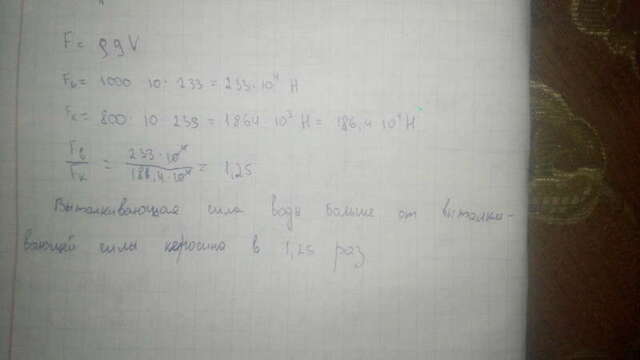 F = ρgV
Fв = 1000 · 10 · 233 = 233 · 10⁴ Н
Fк = 800 · 10 · 233 = 1864 · 10³ Н = 186,4 · 10⁴ Н
Fв/Fк = 233 · 10⁴/186,4 · 10⁴ = 1,25
Выталкивающая сила воды больше от выталки-
вающей силы керосина в 1,25 раз